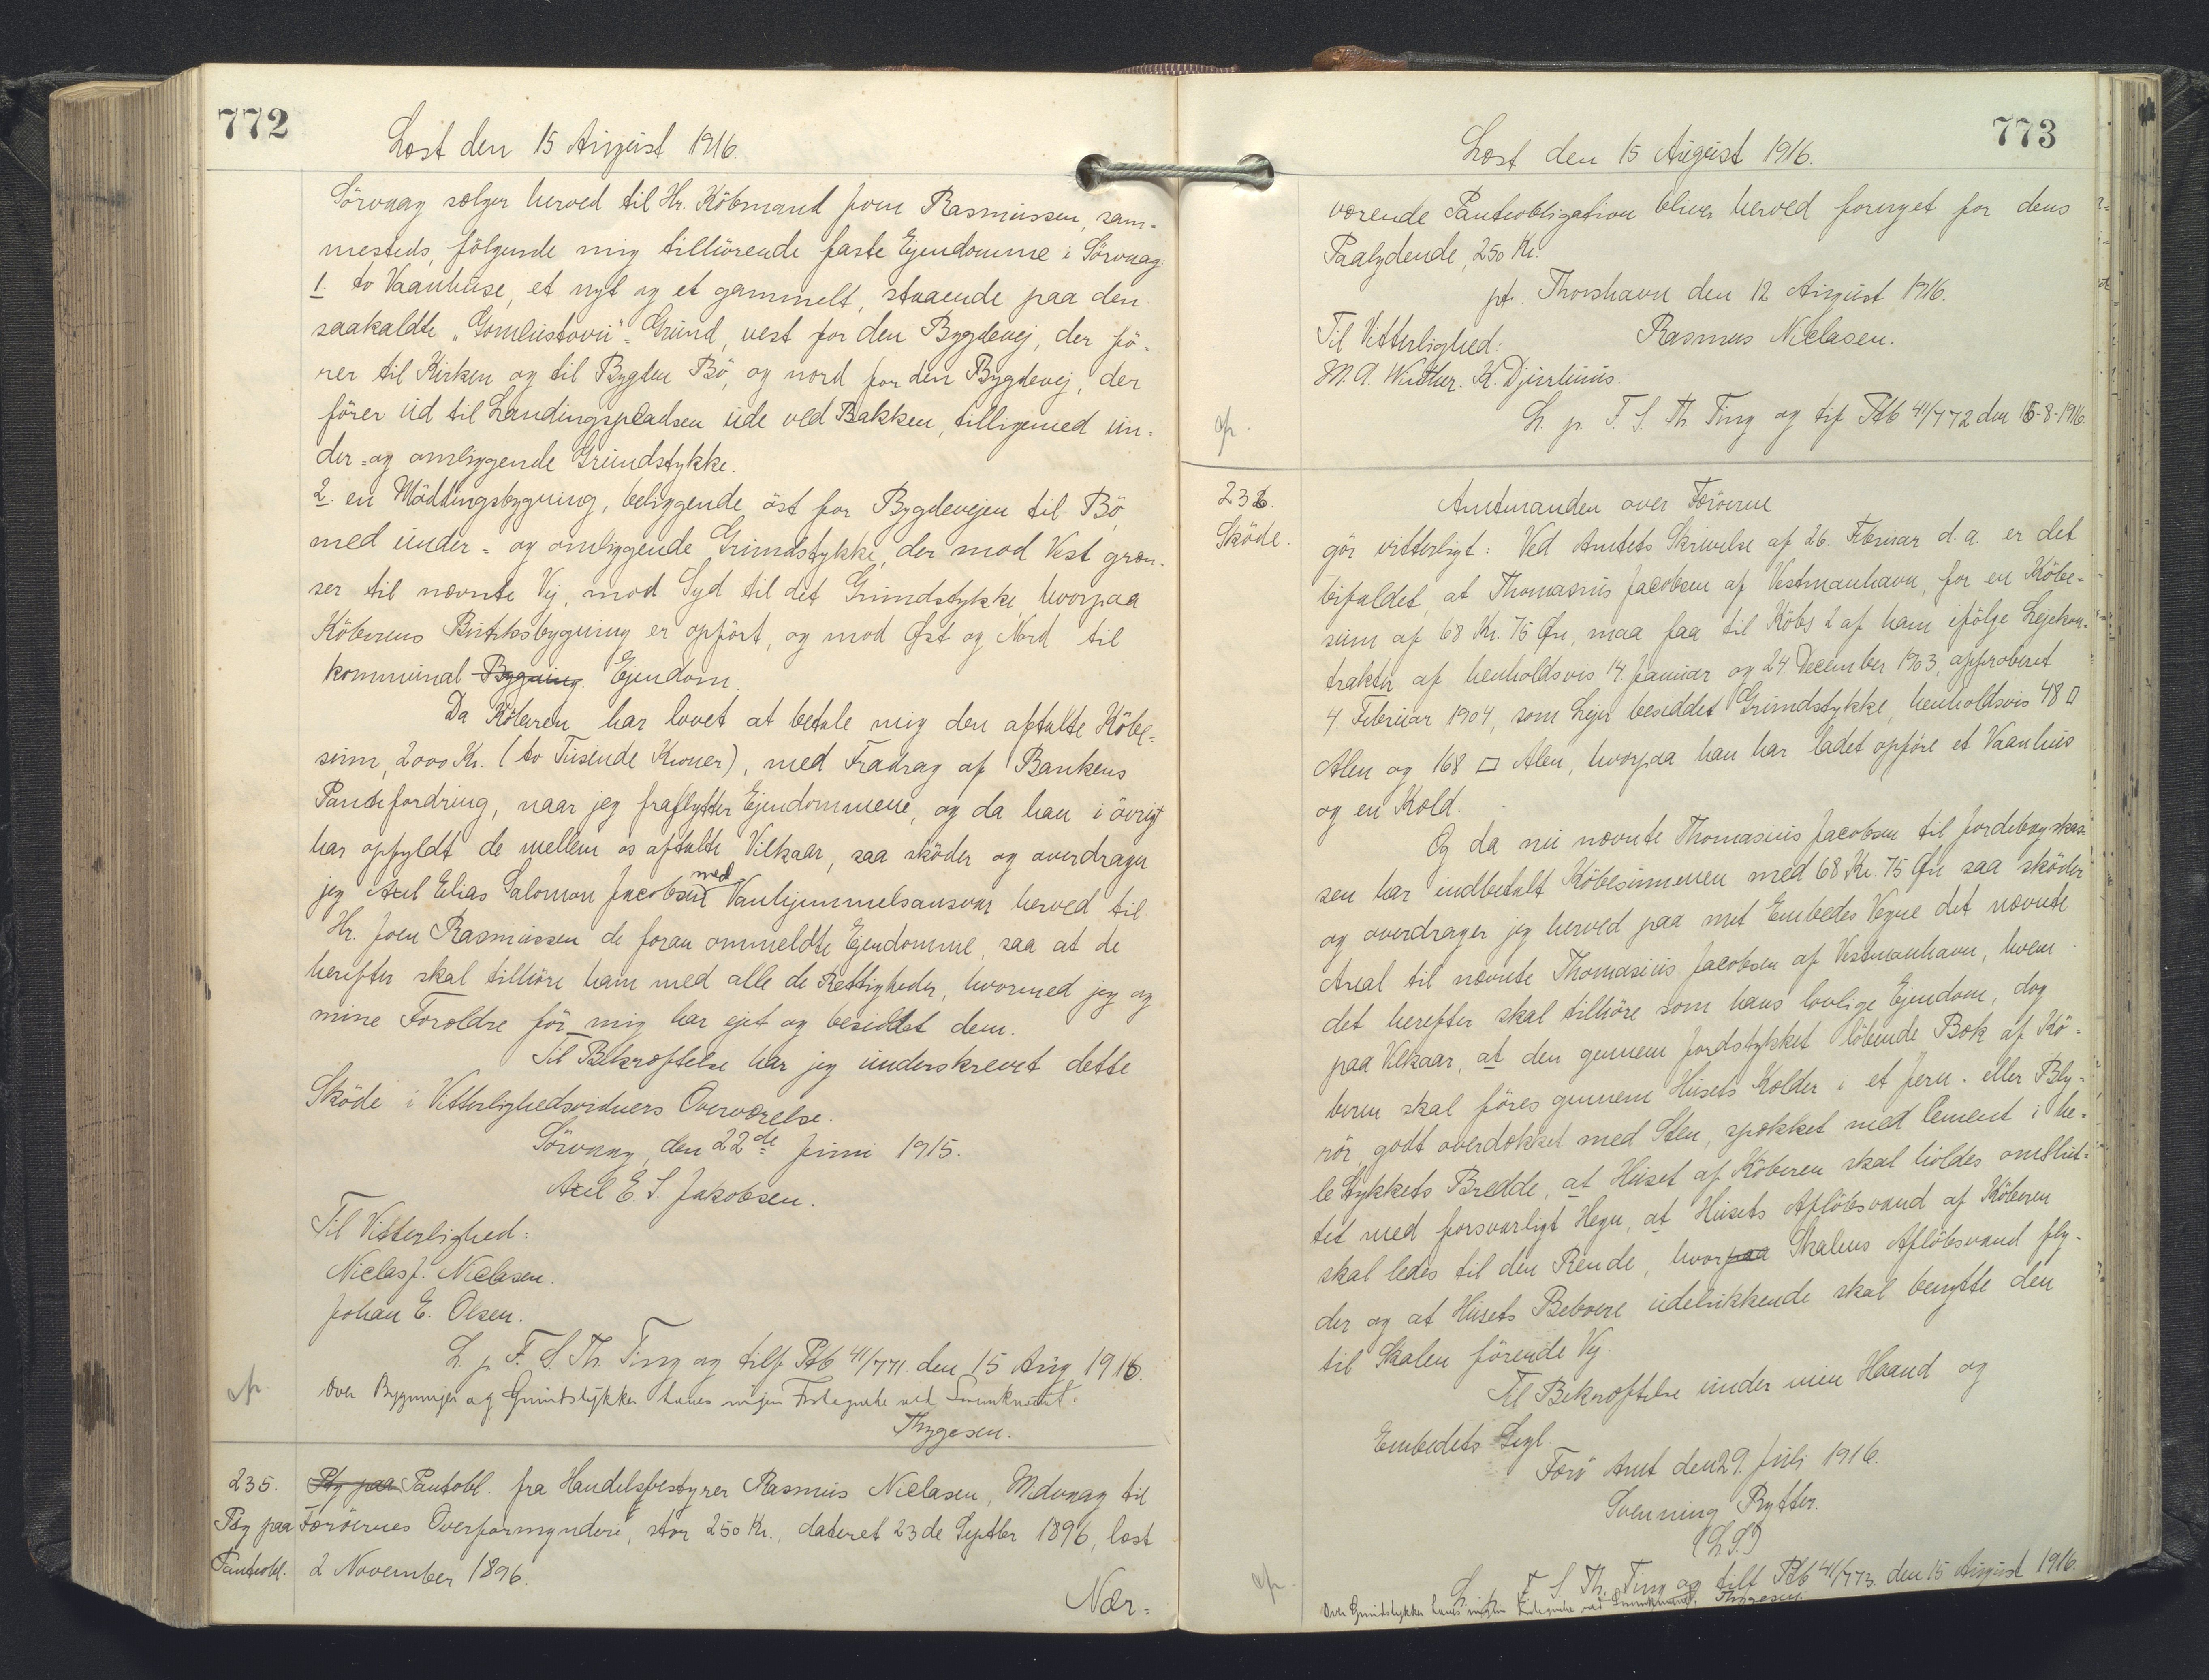 772
Læst den 15 August 1916.
Sörvaag sælger herved til Hr. Köbmand Joen Rasmussen, sam-
mesteds, fölgende mig tilhörende faste Ejendomme i Sörvaag:
1. to Vaanhuse, et nyt og et gammelt, staaende paa den
saakaldte "Gomlustovu"-Grund, vest for den Bygdevej, der fö-
rer til Kirken og til Bygden Bö, og nord for den Bygdevej, der
förer ud til Landingspladsen ude ved Bakken, tilligemed un-
der- og omliggende Grundstykke.
2. en Möddingsbygning, beliggende öst for Bygdevejen til Bö,
med under- og omliggende Grundstykke, der mod Vest græn-
ser til nævnte Vej, mod Syd til det Grundstykke, hvorpaa
Köberens Butiksbygning er opfört, og mod Øst og Nord til
kommunal Bygning Ejendom.
Da Köberen har lovet at betale mig den aftalte Köbe-
sum, 2000 Kr. (to Tusende Kroner), med Fradrag af Bankens
Pantefordring, naar jeg fraflytter Ejendommene, og da han i övrigt
har opfyldt de mellem os aftalte Vilkaar, saa sköder og overdrager
jeg Axel Elias Salomon Jacobsen med Vanhjemmelsansvar herved til
Hr. Joen Rasmussen de foran ommeldte Ejendomme, saa at de
herefter skal tilhöre ham med alle de Rettigheder, hvormed jeg og
mine Forældre för mig har ejet og besiddet dem.
Til Bekræftelse har jeg underskrevet dette
Sköde i Vitterlighedsvidners Overværelse.
Sörvaag, den 22de Juni 1915.
Axel E. S. Jakobsen.
Til Vitterlighed:
Niclas J. Niclasen.
Johan E. Olsen.
L. p. F. S. Th. Ting og tilf. Ptb 41/771 den 15 Aug 1916.
Over Bygninger og Grundstykker haves ingen
Thygesen.
235.
Ptg paa
Panteobl.
Ptg paa Pantobl. fra Handelsbestyrer Rasmus Niclasen, Midvaag til
Færöernes Overformynderi, stor 250 Kr., dateret 23de Septbr 1896, læst
2 November 1896.
Nær-
773
Læst den 15 August 1916.
værende Panteobligation bliver herved fornyet for dens
Paalydende, 250 Kr.
pt. Thorshavn den 12 August 1916.
Rasmus Niclasen.
Til Vitterlighed:
M. A. Winther. K. Djurhuus.
L. p. F. S. Th. Ting og tilf Ptb 41/772 den 15-8-1916.
236.
Sköde.
Amtmanden over Færöerne
gör vitterligt: Ved Amtets Skrivelse af 26. Februar d.a. er det
bifaldet, at Thomasius Jacobsen af Vestmanhavn, for en Köbe-
sum af 68 Kr. 75 Øre, maa faa til Köbs 2 af ham ifölge Lejekon-
trakter af henholdsvis 14. Januar og 24. December 1903, approberet
4. Februar 1904, som Lejer besiddet Grundstykke, henholdsvis 48 □
Alen og 168 □ Alen, hvorpaa han har ladet opföre et Vaanhus
og en Kold.
Og da nu nævnte Thomasius Jacobsen til Jordebogskas-
sen har indbetalt Köbesummen med 68 Kr. 75 Øre saa sköder
og overdrager jeg herved paa mit Embedes Vegne det nævnte
Areal til nævnte Thomasius Jacobsen af Vestmanhavn, hvem
det herefter skal tilhöre som hans lovlige Ejendom, dog
paa Vilkaar, at den gennem Jordstykket löbende Bæk af Kö-
beren skal föres gennem Husets Kælder i et Jern- eller Bly-
rör, godt overdækket med Sten, spækket med Cement i he-
le Stykkets Bredde, at Huset af Köberen skal holdes omslut-
tet med forsvarligt Hegn, at Husets Aflöbsvand af Köberen
skal ledes til den Rende, hvorpaa Skalens Aflöbsvand fly-
der og at Husets Beboere udelukkende skal benytte den
til Skalen förende Vej.
Til Bekræftelse under min Haand og
Embedets Segl.
Færö Amt den 29. Juli 1916.
Svenning Rytter.
(L.S.)
L. p. F. S. Th. Ting og tilf Ptb 41/773 den 15 August 1916.
Over Grundstykker haves ingen
Thygesen.